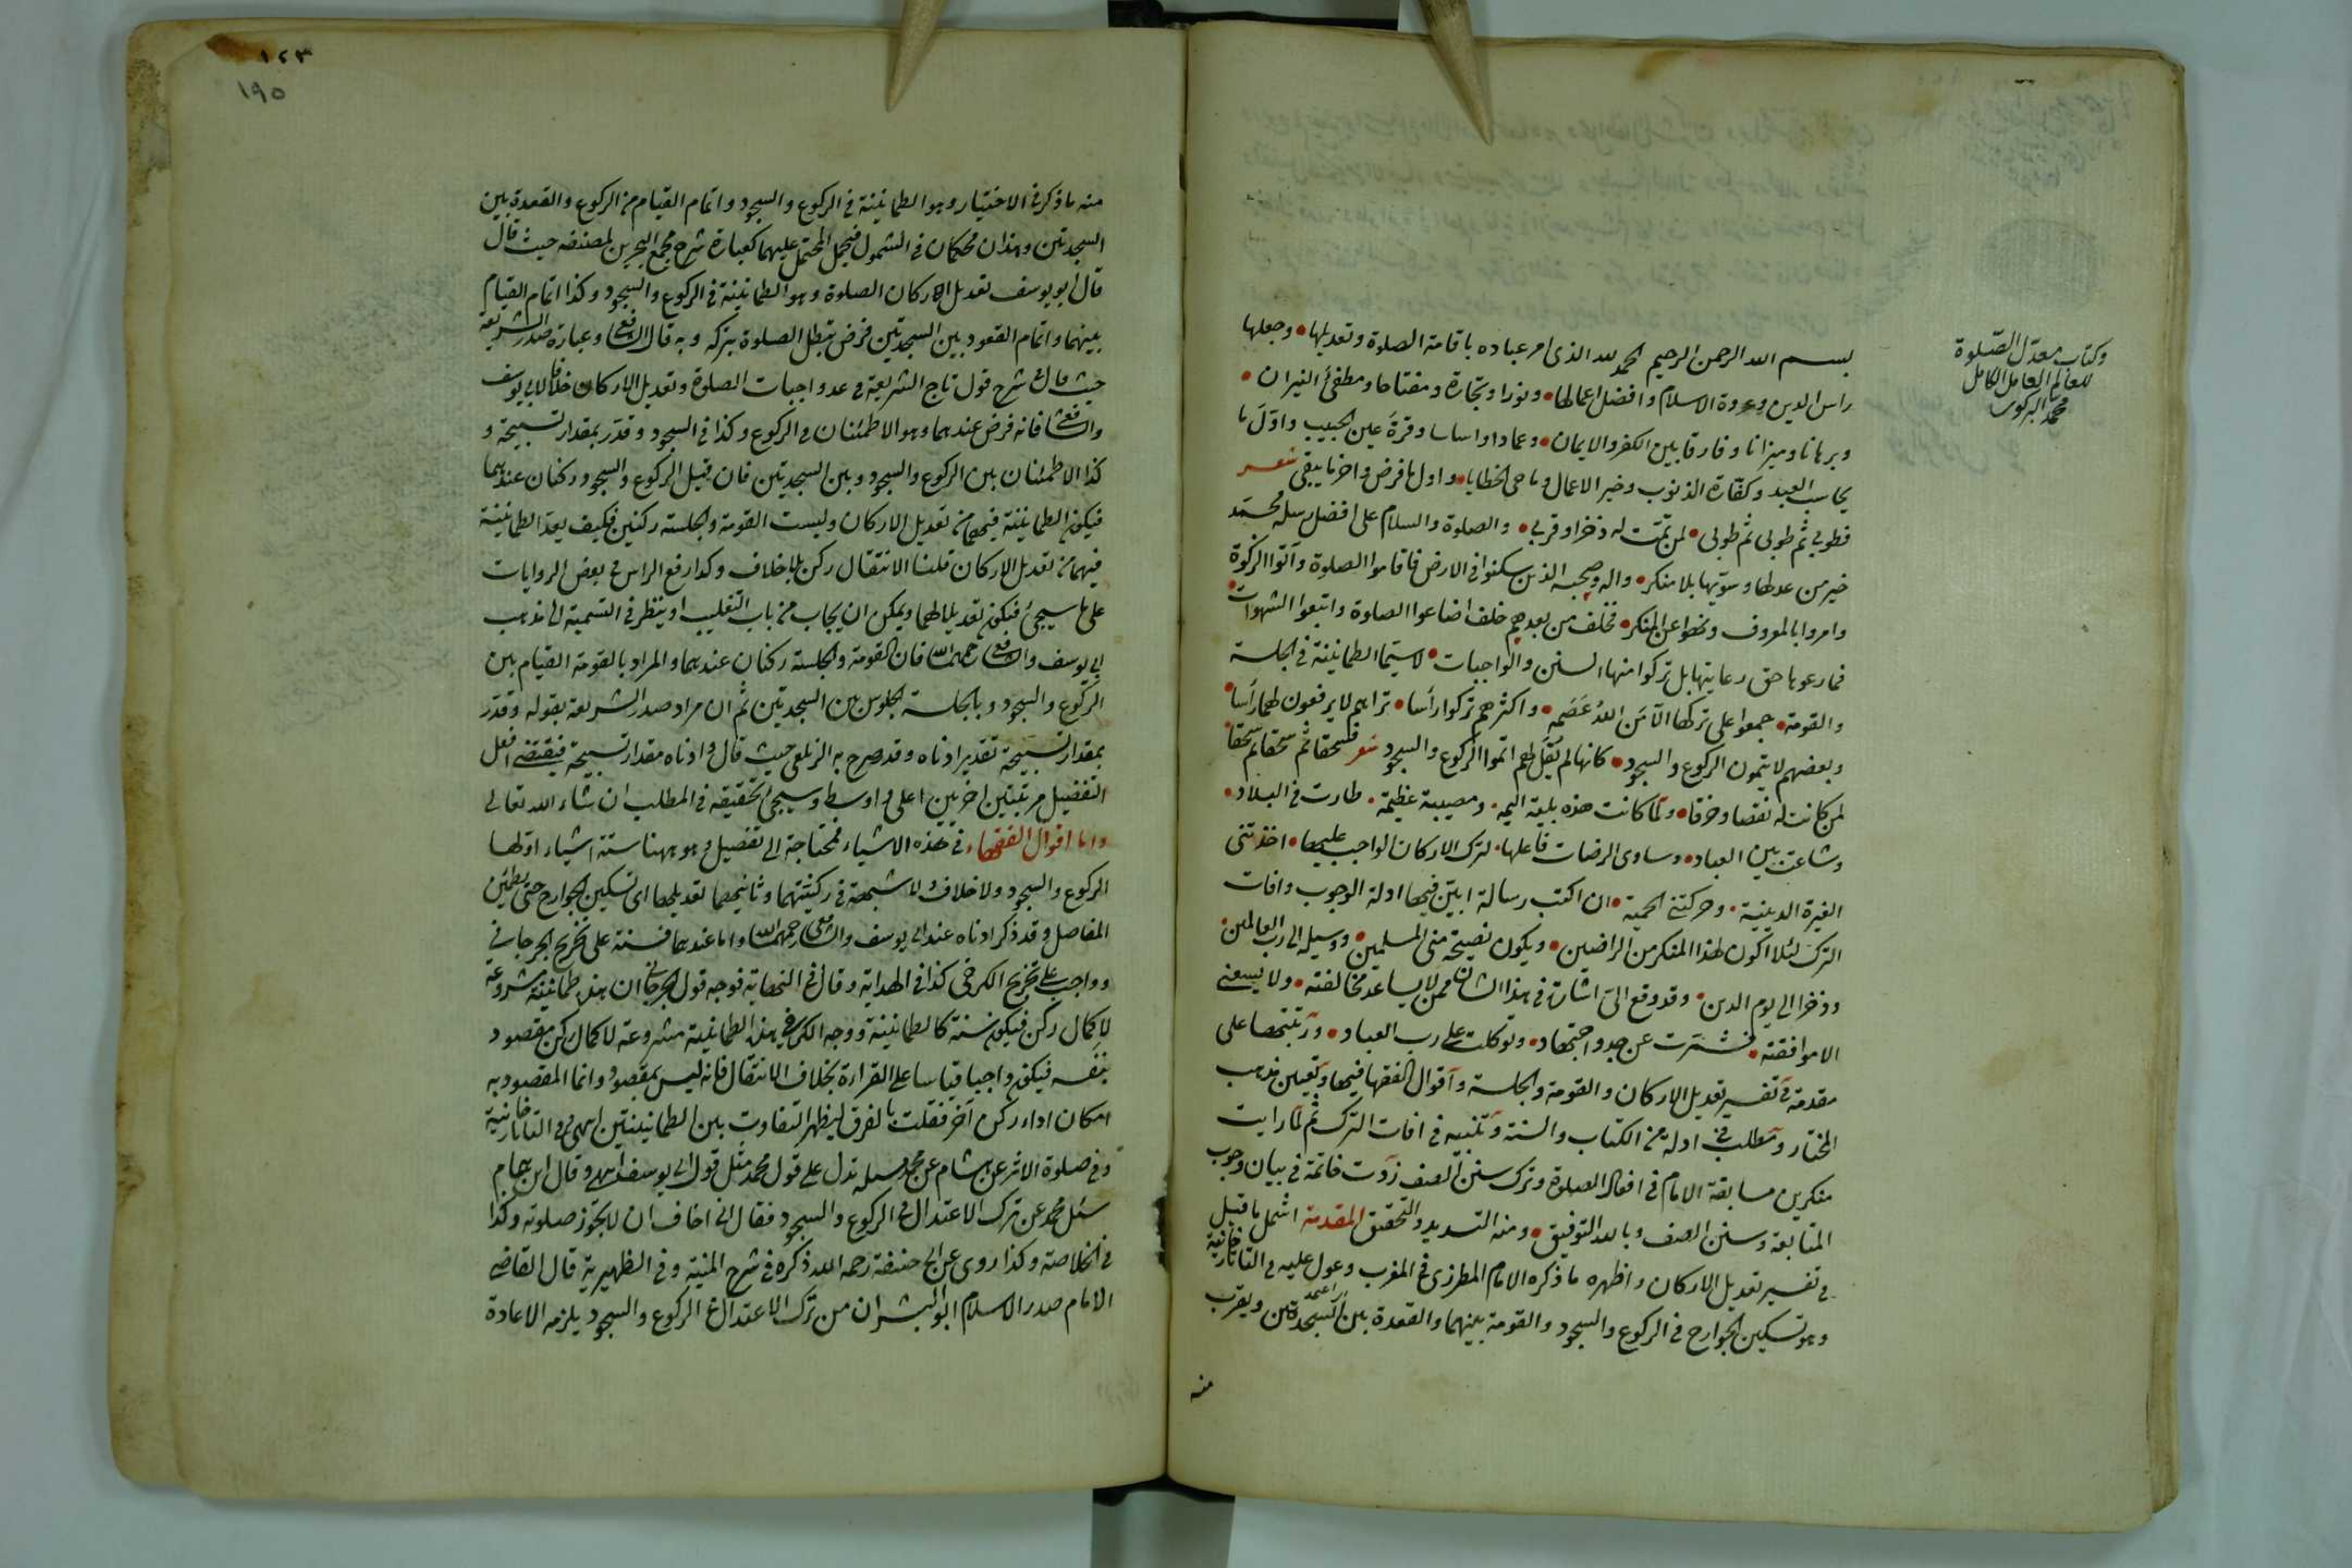 وكتاب معدّل الصّلوة
للعالم العامل الكامل
محمد البركوى
بسم الله الرحمن الرحيم الحمد لله الذى امر عباده باقامة الصلوة وتعديلها وجعلها
راس الدين وعروة الاسلام وافضل اعمالها ونورا وتجارة ومفتاحا ومطفئ النيران
وبرهانا وميزانا وفارقا بين الكفر والايمان وعمادا واساسا وقرة عين الحبيب واوّل ما
يحاسب العبد وكفّارة الذنوب وخير الاعمال وماحى الخطايا واول ما فرض واخر ما يبقى شعر
فطوبى ثم طوبى ثم طوبى لمن تمّت له ذخرا وقربى والصلوة والسلام على افضل رسله محمّد
خير من عدلها وسوّيها بلا منكر واله وصحبه الذين سكنوا فى الارض فاقاموا الصلوة وآتوا الزكوة
وامروا بالمعروف ونهوا عن المنكر فخلف من بعدهم خلف اضاعوا الصلوة واتبعوا الشهوات
فما رعوها حق رعايتها بل تركوا منها السنن والواجبات لا سيّما الطمانينة فى الجلسة
والقومة جمعوا على تركها الّا مَن اللهُ عَصَمه واكثرهم تركوا رأسا تراهم لا يرفعون لهما رأسا
وبعضهم لا يتمون الركوع والسجود كانها لم يُقَل لهم اتموا الركوع والسجود شعر فسحقا ثم سحقا ثم سحقا
لمن كانت له نقصا وخرقا ولمّا كانت هذه بلية اليمه ومصيبة عظيمة طارت فى البلاد
وشاعت بين العباد وساوى الرضات فاعلها لترك الاركان الواجب عليها اخذتنى
الغيرة الدينية وحركتنى الحمية ان اكتب رسالة ابيّن فيها ادلة الوجوب وافات
الترك لئلا اكون لهذا المنكر من الراضين ويكون نصيحة منى المسلمين ووسيلة الى رب العالمين
وذخرا الى يوم الدين وقد وقع الىّ اشارة فى هذا الشان ممن لا يساعد مخالفته ولا يسعنى
الا موافقته فشمّرت عن جد واجتهاد وتوكلت على رب العباد ورتبتها على
مقدمة فى تفسير تعديل الاركان والقومة والجلسة واقوال الفقها فيها وتعيين مذهب
المختار ومطلب فى ادلة من الكتاب والسنة وتنبيه فى افات الترك ثم لما رايت
منكرين مسابقة الامام فى افعال الصلوة وترك سنن الصف زدت خاتمة فى بيان وجوب
المتابعة وسنن الصف وبالله التوفيق ومنه التسديد والتحقيق المقدمة اشمل ما قيل
فى تفسير تعديل الاركان واظهره ما ذكره الامام المطرزى فى المغرب وعول عليه فى التاتارخانية
وهو تسكين الجوارح فى الركوع والسجود والقومة بينهما والقعدة بين السجدتين ويقرب
منه
١٢٣
١٩٥
منه ما ذكر فى الاختيار وهو الطمانينة فى الركوع والسجود واتمام القيام من الركوع والقعدة بين
السجدتين وهذان محكمان فى الشمول فيحمل المحتمل عليهما كعبارة شرح مجمع البحرين لمصنفه حيث قال
قال ابو يوسف تعديل الاركان الصلوة وهو الطمانينة فى الركوع والسجود وكذا اتمام القيام
بينهما واتمام القعود بين السجدتين فرض تبطل الصلوة بتركه وبه قال الشافعى وعبارة صدر الشريعة
حيث قال فى شرح قول تاج الشريعة فى عدو اجبات الصلوة وتعديل الاركان خلافا لابى يوسف
والشافعى فانه فرض عندهما وهو الاطمئنان فى الركوع وكذا فى السجود وقدّر بمقدار تسبيحة و
كذا الاطمئنان بين الركوع والسجود وبين السجدتين فان قيل الركوع والسجود ركنان عندهما
فيكون الطمانينة فيهما من تعديل الاركان وليست القومة والجلسة ركنين فكيف يعدّ الطمانينة
فيهما من تعديل الاركان قلنا الانتقال ركن بلا خلاف وكذا رفع الراس فى بعض الروايات
على ما سيجئ فيكون تعديلا لهما ويمكن ان يجاب من باب التغليب او ينظر فى التسمية الى مذهب
ابى يوسف والشافعى رحمهما الله فان القومة والجلسة ركنان عندهما والمراد بالقومة القيام بين
الركوع والسجود وبالجلسة الجلوس بين السجدتين ثم ان مراد صدر الشريعة بقوله وقدّر
بمقدار تسبيحة تقدير ادناه وقد صرح به الزيلعى حيث قال وادناه مقدار تسبيحة فيقتضى افعل
التفضيل مرتبتين اخريين اعلى واوسط وسيجئ تحقيقه فى المطلب ان شاء الله تعالى
واما اقوال الفقهاء فى هذه الاشياء فمحتاجة الى تفصيل وهو ههنا ستة اشياء اولها
الركوع والسجود ولا خلاف ولا شبهة فى ركنيتهما وثانيهما تعديلهما اى تسكين الجوارح حتى يطمئن
المفاصل وقد ذكر ادناه عند ابى يوسف والشافعى رحمهما الله واما عندهما فسنة على تخريج الجرجانى
وواجب على تخريج الكرخى كذا فى الهداية وقال فى النهاية فوجه قول الجرجانى ان هذه طمانينة مشروعة
لاكمال ركن فيكون سنة كالطمانينة ووجه الكرخى هذه الطمانينة مشروعة لاكمال ركن مقصود
بنفسه فيكون واجبا قياسا على القراءة بخلاف الانتقال فانه ليس بمقصود وانما المقصود به
امكان اداء ركن آخر فقلت بالفرق ليظهر التفاوت بين الطمانينتين انتهى وفى التاتارخانية
وفى صلوة الاثر عن هشام عن محمد مسئلة تدل على قول محمد مثل قول ابى يوسف انتهى وقال ابن همام
سئل محمد عن ترك الاعتدال فى الركوع والسجود فقال انى اخاف ان لا يجوز صلوته وكذا
فى الخلاصة وكذا روى عن ابى حنيفة رحمه الله ذكره فى شرح المنية وفى الظهيرية قال القاضى
الامام صدر الاسلام ابو اليسر ان من ترك الاعتدال فى الركوع والسجود يلزمه الاعادة